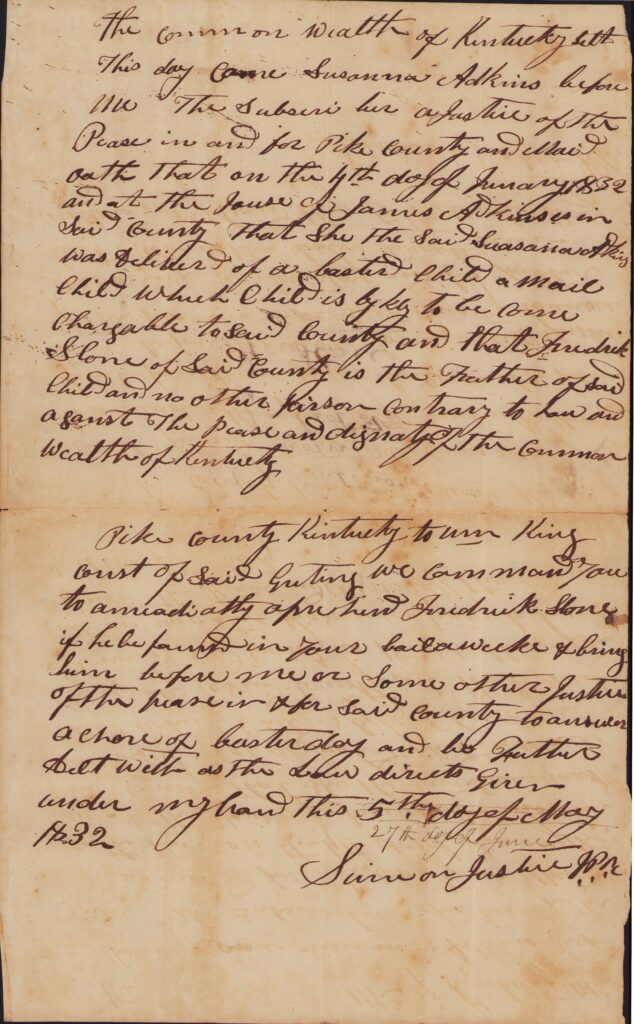 The Common Wealth of Kintucky Sctt
This day Came Susanna Adkins before
me The Subscri ber a Justice of the
Pease in and for Pike County and Maid
oath that on the 4th day of Junary 1832
and at the house of James Adkinses in
Said County That She the Said Suasana Adkins
was Deliverd of a basterd Child a mail
Child Which Child is lykly to be come
Chargable to Said County and that Fredrik
Slone of Said County is the Father of Said
Child and no other pirson Contrary to Law and
aganst The pease and dignaty of the Common
Wealth of Kintucky
Pike County Kintucky to Wm King
Const of Said Greting We Command You
to ameadiatly apre hend Fredrik Slone
if he be found in Your bailaweeke & bring
him before me or Some other Justice
of the pease in & for Said County to answer
a Chore of basterday and be Further
Delt With as the Law directs Given
under my hand this 5th day of May
27th day of June
1832
Simeon Justice JPC